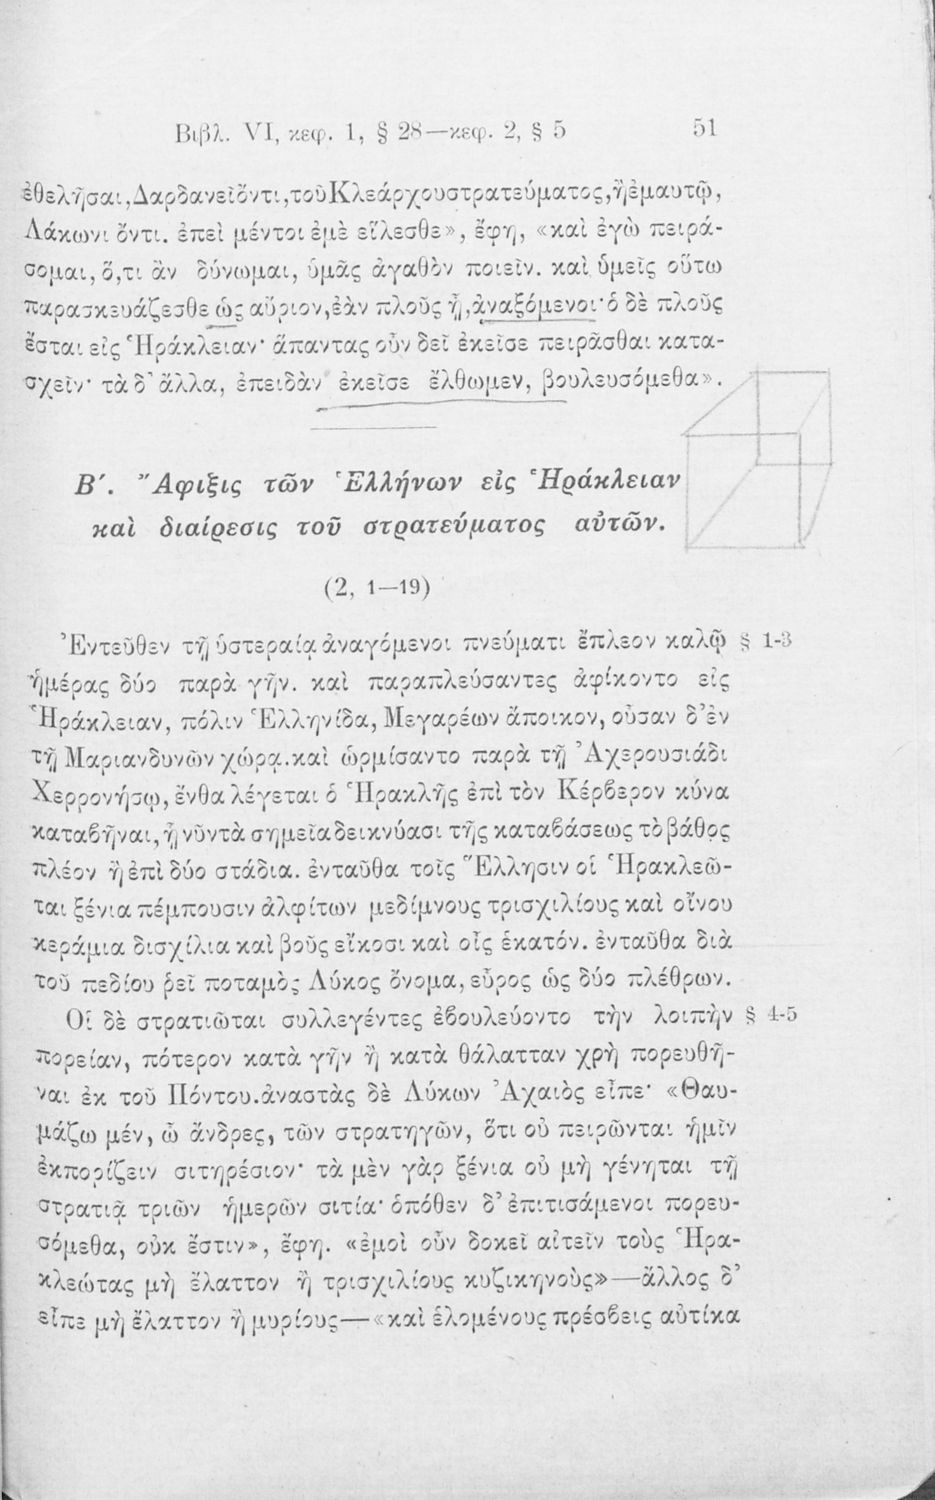 Βιβλ. VI, κεφ. 1, § 28—κεφ. 2, § 5 51
ἐθελῆσαι, Δαρδανεῖ ὄντι, τοῦ Κλεάρχου στρατεύματος, ἢ ἐμαυτῷ,
Λάκωνι ὄντι. ἐπεὶ μέντοι ἐμὲ εἵλεσθε», ἔφη, «καὶ ἐγὼ πειρά-
σομαι, ὅ,τι ἂν δύνωμαι, ὑμᾶς ἀγαθὸν ποιεῖν. καὶ ὑμεῖς οὕτω
παρασκευάζεσθε ὡς αὔριον, ἐὰν πλοῦς ᾖ, ἀναξόμενοι· ὁ δὲ πλοῦς
ἔσται εἰς Ἡράκλειαν· ἅπαντας οὖν δεῖ ἐκεῖσε πειρᾶσθαι κατα-
σχεῖν· τὰ δ' ἄλλα, ἐπειδὰν ἐκεῖσε ἔλθωμεν, βουλευσόμεθα».
Β΄. Ἄφιξις τῶν Ἑλλήνων εἰς Ἡράκλειαν
καὶ διαίρεσις τοῦ στρατεύματος αὐτῶν.
(2, 1—19)
Ἐντεῦθεν τῇ ὑστεραίᾳ ἀναγόμενοι πνεύματι ἔπλεον καλῷ § 1-3
ἡμέρας δύο παρὰ γῆν. καὶ παραπλεύσαντες ἀφίκοντο εἰς
Ἡράκλειαν, πόλιν Ἑλληνίδα, Μεγαρέων ἄποικον, οὖσαν δ' ἐν
τῇ Μαριανδυνῶν χώρᾳ. καὶ ὡρμίσαντο παρὰ τῇ Ἀχερουσιάδι
Χερρονήσῳ, ἔνθα λέγεται ὁ Ἡρακλῆς ἐπὶ τὸν Κέρβερον κύνα
καταβῆναι, ᾗ νῦν τὰ σημεῖα δεικνύασι τῆς καταβάσεως τὸ βάθος
πλέον ἢ ἐπὶ δύο στάδια. ἐνταῦθα τοῖς Ἕλλησιν οἱ Ἡρακλεῶ-
ται ξένια πέμπουσιν ἀλφίτων μεδίμνους τρισχιλίους καὶ οἴνου
κεράμια δισχίλια καὶ βοῦς εἴκοσι καὶ οἶς ἑκατόν. ἐνταῦθα διὰ
τοῦ πεδίου ῥεῖ ποταμὸς Λύκος ὄνομα, εὖρος ὡς δύο πλέθρων.
Οἱ δὲ στρατιῶται συλλεγέντες ἐβουλεύοντο τὴν λοιπὴν § 4-5
πορείαν, πότερον κατὰ γῆν ἢ κατὰ θάλατταν χρὴ πορευθῆ-
ναι ἐκ τοῦ Πόντου. ἀναστὰς δὲ Λύκων Ἀχαιὸς εἶπε· «Θαυ-
μάζω μέν, ὦ ἄνδρες, τῶν στρατηγῶν, ὅτι οὐ πειρῶνται ἡμῖν
ἐκπορίζειν σιτηρέσιον· τὰ μὲν γὰρ ξένια οὐ μὴ γένηται τῇ
στρατιᾷ τριῶν ἡμερῶν σιτία· ὁπόθεν δ' ἐπιτισάμενοι πορευ-
σόμεθα, οὐκ ἔστιν», ἔφη. «ἐμοὶ οὖν δοκεῖ αἰτεῖν τοὺς Ἡρα-
κλεώτας μὴ ἔλαττον ἢ τρισχιλίους κυζικηνοὺς»—ἄλλος δ'
εἶπε μὴ ἔλαττον ἢ μυρίους—«καὶ ἑλομένους πρέσβεις αὐτίκα